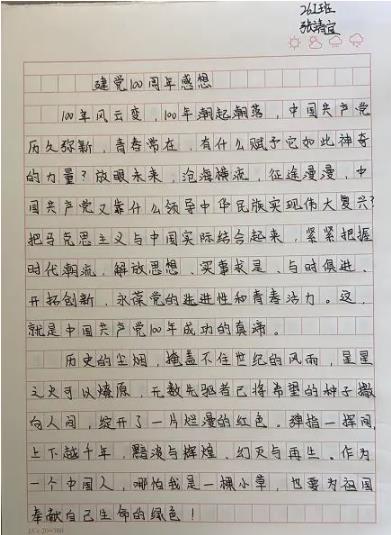 261班
张靖宜
建党100周年感想
100年风云变,100年潮起潮落,中国共产党
历久弥新,青春常在,有什么赋予它如此神奇
的力量?放眼未来,沧海横流,征途漫漫,中
国共产党又靠什么领导中华民族实现伟大复兴?
把马克思主义与中国实际结合起来,紧紧把握
时代潮流,解放思想、实事求是、与时俱进、
开拓创新,永葆党的先进性和青春活力。这,
就是中国共产党100年成功的真谛。
历史的尘烟,掩盖不住世纪的风雨,星星
之火可以燎原,无数先驱者已将希望的种子撒
向人间,绽开了一片烂漫的红色。弹指一挥间,
上下越千年,黯淡与辉煌、幻灭与再生。作为
一个中国人,哪怕我是一棵小草,也要为祖国
奉献自己生命的绿色!